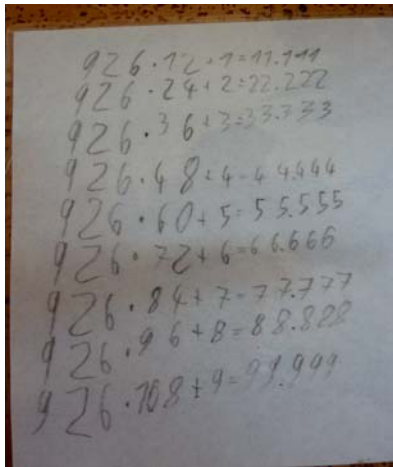 926·12+1=11.111
926·24+2=22.222
926·36+3=33.333
926·48+4=44.444
926·60+5=55.555
926·72+6=66.666
926·84+7=77.777
926·96+8=88.888
926·108+9=99.999